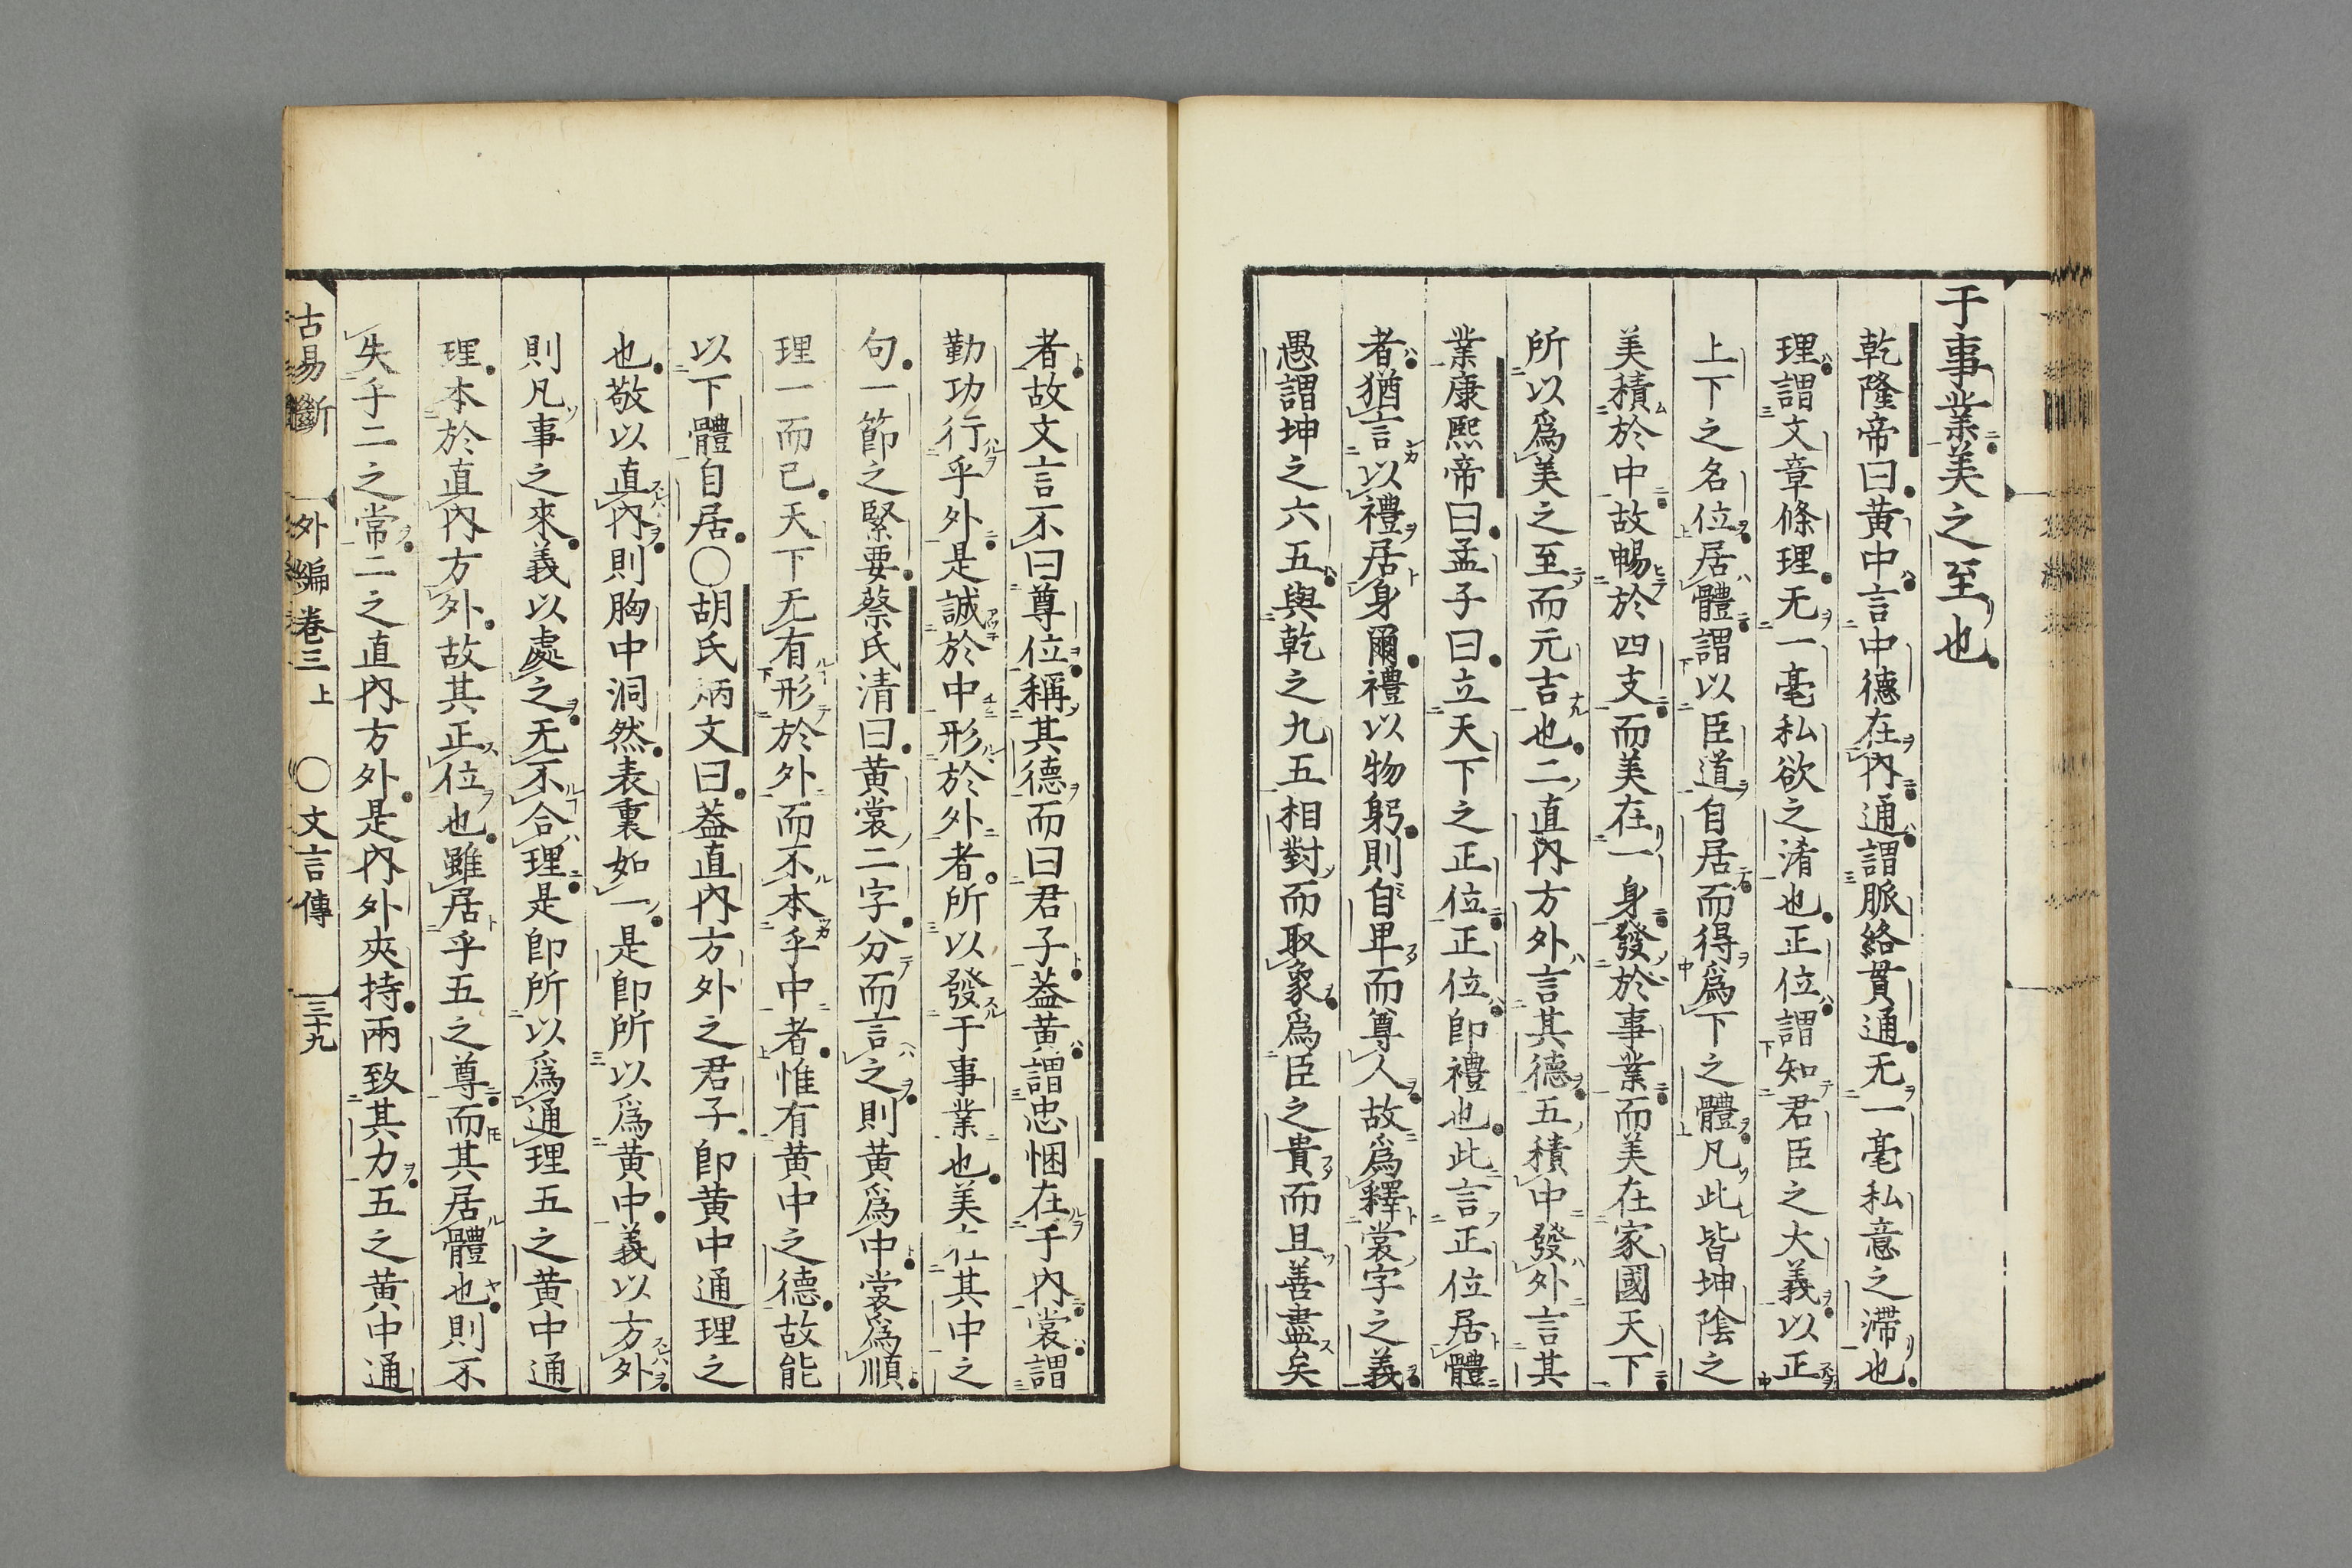 于事業美之至也
乾隆帝曰黃中言中德在內通謂脈絡貫通无一毫私意之滯也
理謂文章條理无一毫私欲之淆也正位謂知君臣之大義以正
上下之名位居體謂以臣道自居而得爲下之體凡此皆坤陰之
美積於中故暢於四支而美在一身發於事業而美在家國天下
所以爲美之至而元吉也二直內方外言其德五積中發外言其
業康熙帝曰孟子曰立天下之正位正位卽禮也此言正位居體
者猶言以禮居身爾禮以物躬則自卑而尊人故爲釋裳字之義
愚謂坤之六五與乾之九五相對而取象爲臣之貴而且善盡矣
者故文言不曰尊位稱其德而曰君子葢黃謂忠悃在于內裳謂
勤功行乎外是誠於中形於外者所以發于事業也美在其中之
句一節之緊要蔡氏清曰黃裳二字分而言之則黃爲中裳爲順
理一而已天下无有形於外而不本乎中者惟有黃中之德故能
以下體自居○胡氏炳文曰葢直內方外之君子卽黃中通理之
也敬以直內則胸中洞然表裏如一是卽所以爲黃中義以方外
則凡事之來義以處之无不合理是卽所以爲通理五之黃中通
理本於直內方外故其正位也雖居乎五之尊而其居體也則不
失乎二之常二之直內方外是內外夾持兩致其力五之黃中通
古易斷 外編卷三上 ○文言傳 三十九